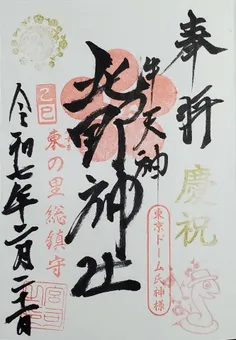 奉拝
慶祝
牛天神
北野神社
東京ドーム氏神様
乙巳
東の里総鎮守
令和七年二月二十一日